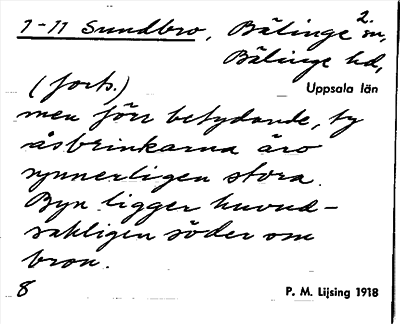 2.
1-11 Sundbro, Bälinge sn,
Bälinge hd,
Uppsala län
(forts.)
men förr betydande, ty
åsbrinkarna äro
synnerligen stora.
Byn ligger huvud-
sakligen söder om
bron.
8
P. M. Lijsing 1918